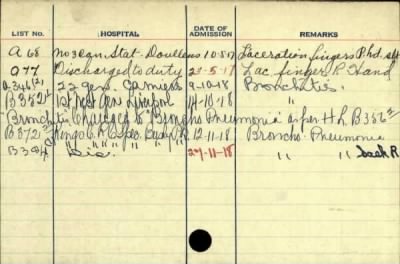 LIST NO. HOSPITAL DATE OF ADMISSION REMARKS
A 68 No 3 Can. Stat. Doullens 10-5-17 Laceration fingers R hd slt
A77 Discharged to duty 23-5-17 Lac fingers R Hand
A346 22 Gen. Camiers 9-10-18 Bronchitis.
B352 1st West Gen Liverpool 14-10-18 "
Bronchitis Changed to "Broncho Pneumonia" as per H.L. B356
B372 Kings C. Spec. Bushy Pk 12-11-18 Broncho Pneumonia
B384 Dis. " " " " 29-11-18 " "